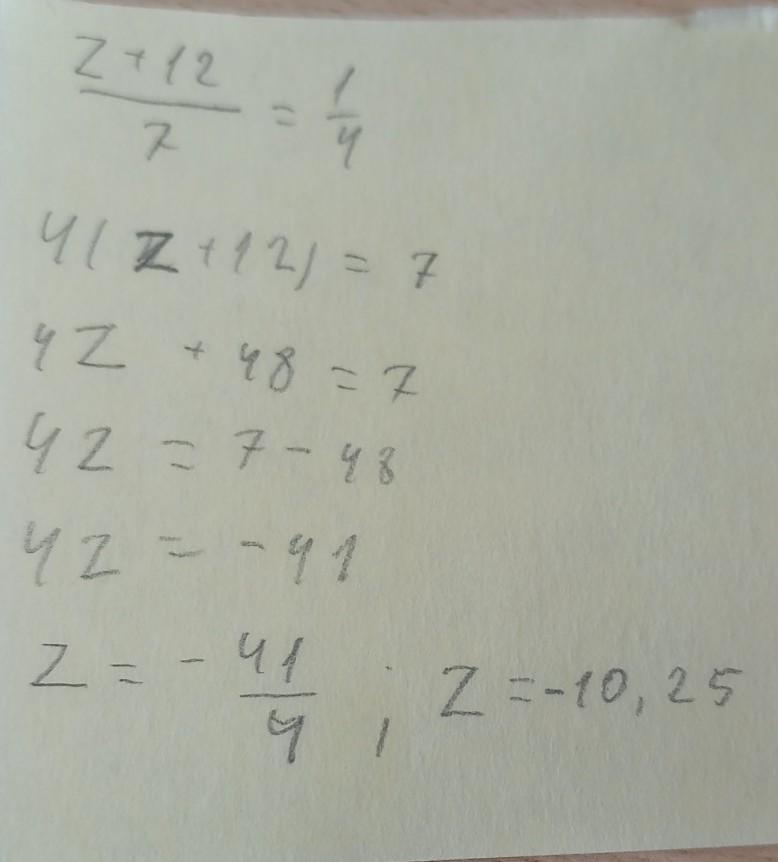 z+12/7 = 1/4
4(z+12) = 7
4z + 48 = 7
4z = 7-48
4z = -41
z = -41/4 ; z = -10,25